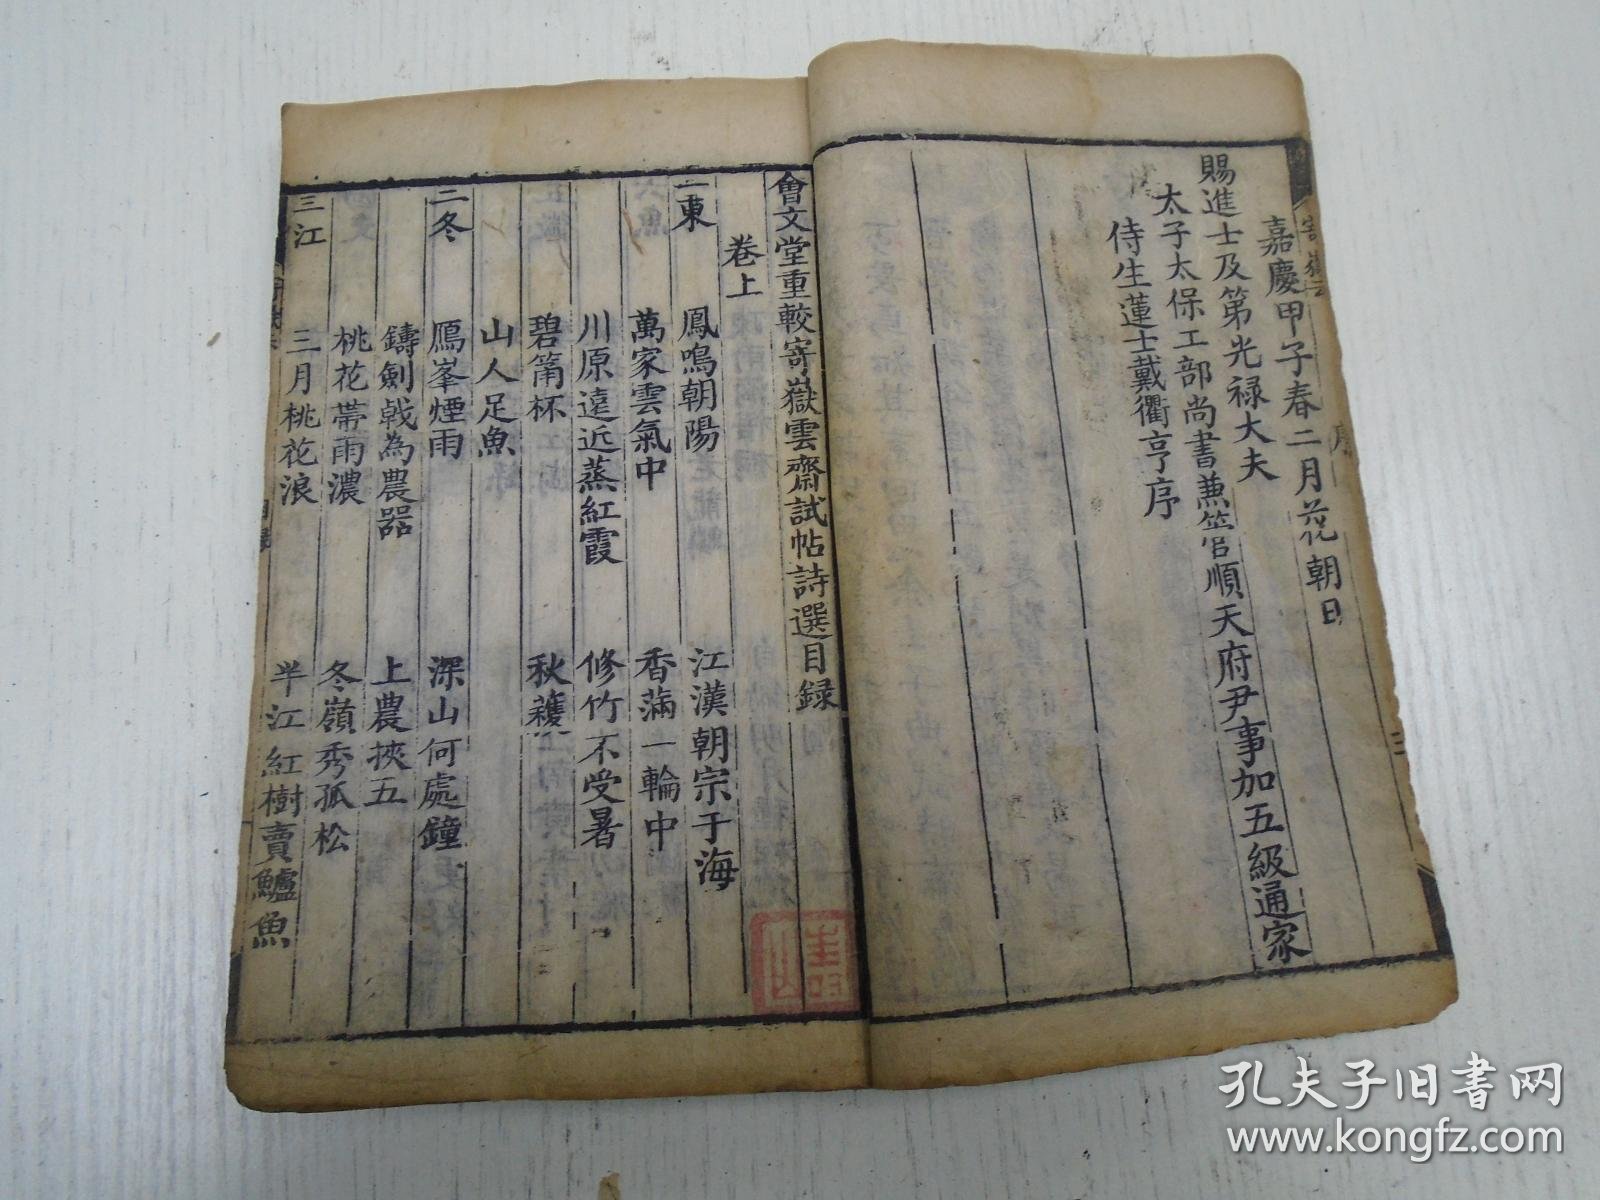 嘉慶甲子春二月花朝日
賜進士及第光祿大夫
太子太保工部尚書兼管順天府尹事加五級通家
侍生蓮士戴衢亨序
會文堂重較寄嶽雲齋試帖詩選目錄
卷上
一東 鳳鳴朝陽 江漢朝宗于海
萬家雲氣中 香滿一輪中
川原遠近蒸紅霞 修竹不受暑
碧筩杯 秋穫
山人足魚
二冬 鴈峯煙雨 深山何處鐘
鑄劍戟為農器 上農挾五
桃花帶雨濃 冬嶺秀孤松
三江 三月桃花浪 半江紅樹賣鱸魚
孔夫子旧书网
www.kongfz.com